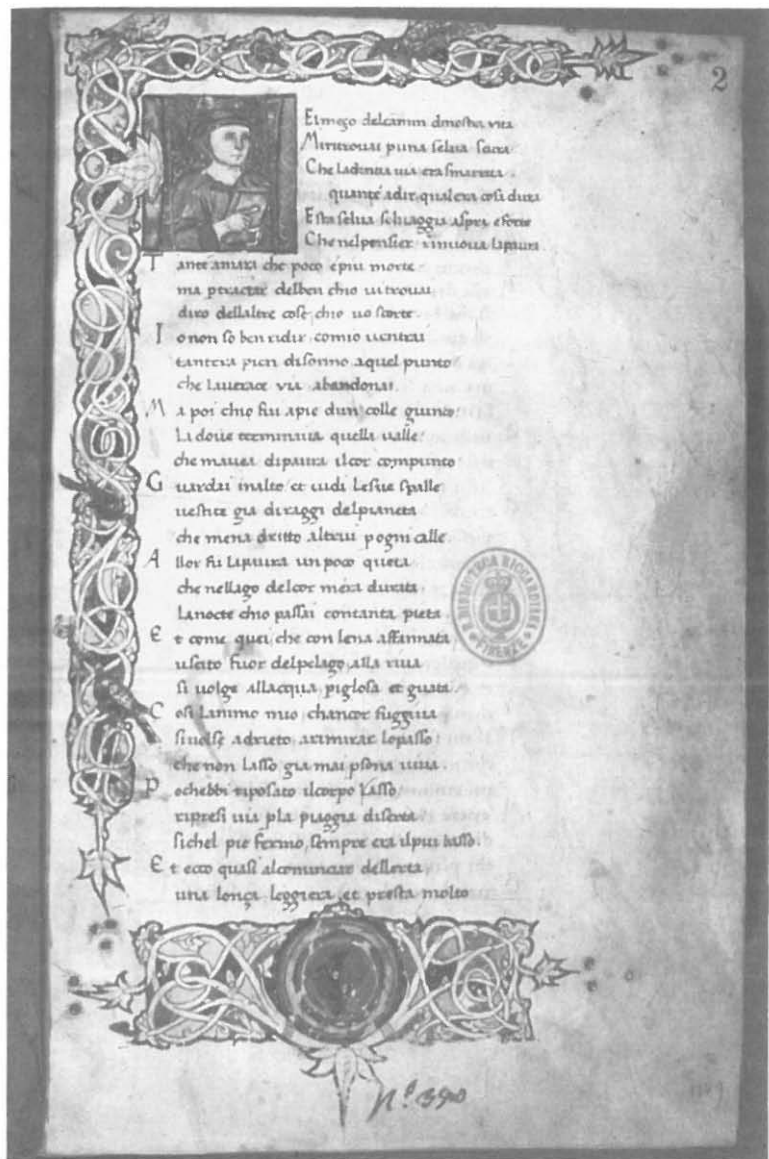 2
El mezo delcamin dnostra vita
Miritrouai p una selua scura
Che ladritta uia era smarrita
quanté adir qual era cosi dura
Esta selua seluaggia aspra e forte
Che nel pensier rinuoua lapaura
Tante amara che poco épiu morte
ma ptractar delben chio ui trouai
diro dellaltre cose chio uo scorte
Io non so ben ridir comio uentrai
tantera pien disonno aquel punto
che lauerace via abandonai
Ma poi chio fui apie dun colle giunto
La doue terminaua quella ualle
che mauea dipaura ilcor compunto
Guardai inalto et uidi lesue spalle
uestite gia diraggi delpianeta
che mena dritto altrui p ogni calle
Allor fu lapaura un poco queta
che nellago delcor mera durata
lanocte chio passai contanta pieta
Et come quei che con lena affannata
uscito fuor delpelago alla riua
si uolge allacqua piglosa et guata
Cosi lanimo mio chancor fuggiua
siuolse adrieto arimirar lopasso
che non lasso gia mai psona uiua
Pochebbi riposato ilcorpo lasso
ripresi uia pla piaggia diserta
sichel pie fermo sempre era ilpiu basso
Et ecco quasi alcominciar dellerta
una lonça leggiera et presta molto
R. BIBLIOTECA RICCARDIANA
FIRENZE
Nº 390